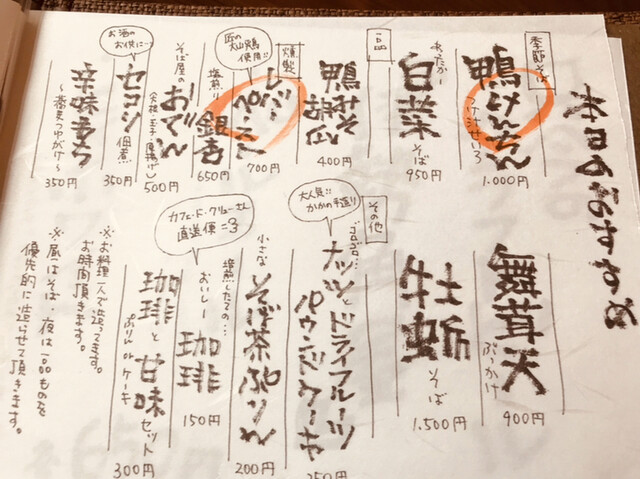 本日のおすすめ
季節そば
鴨けんちん
つけ汁せいろ
1.000円
あったか〜
白菜そば
950円
一品
鴨みそ
400円
燻製
匠の
大山鶏
使用!!
レバーペパーミニ
700円
塩煎り
銀杏
650円
そば屋の
おでん
500円
お酒の
お供に…
セコシ佃煮
350円
辛味まち
〜蕎麦つゆがけ〜
350円
舞茸天
ぶっかけ
900円
牡蛎そば
1.500円
その他
大人気!!
かかの手造り
ゴロゴロ…
ナッツとドライフルーツ
パウンドケーキ
250円
小さな
そば茶ぷりん
200円
カフェ・ド・クリューさん
直送便=3
焙煎したての…
おいしー
珈琲
150円
珈琲と甘味セット
ぷりん or ケーキ
300円
※お料理一人で造ってます。
お時間頂きます。
※昼はそば、夜は一品ものを
優先的に造らせて頂きます。